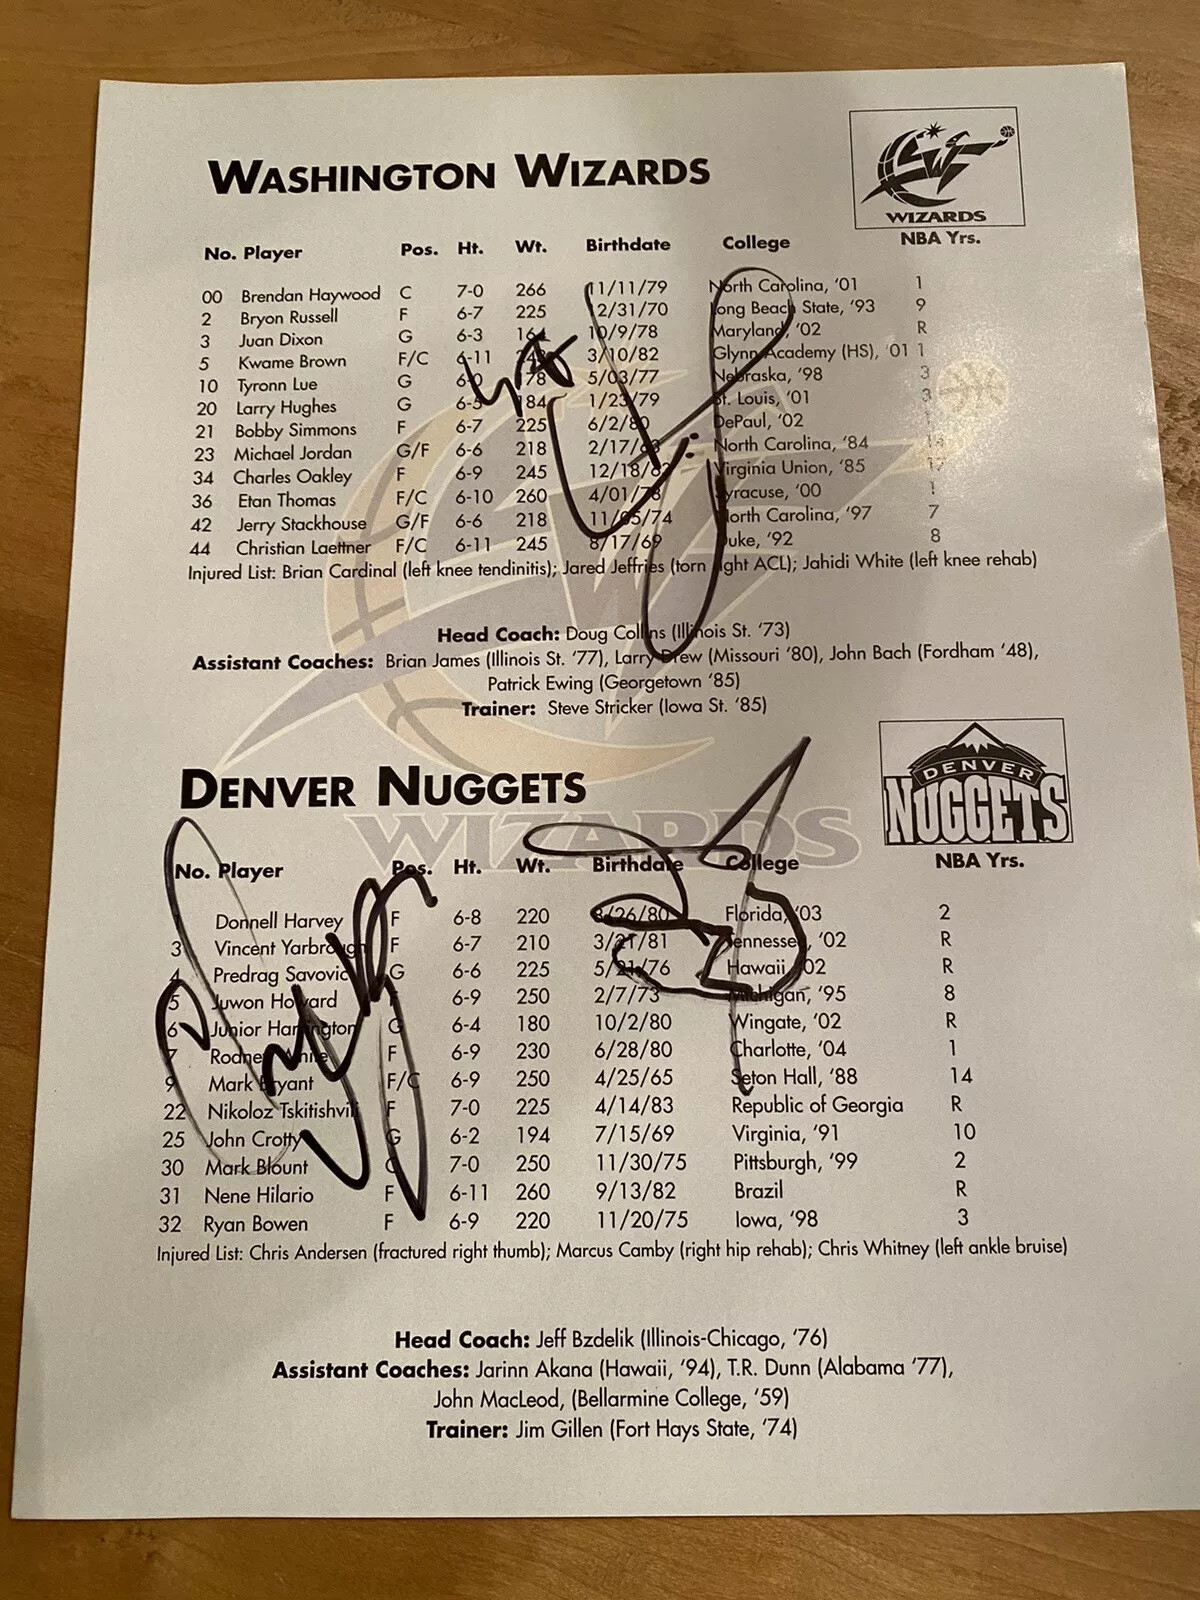 WASHINGTON WIZARDS
WIZARDS
No. Player Pos. Ht. Wt. Birthdate College NBA Yrs.
00 Brendan Haywood C 7-0 266 11/11/79 North Carolina, '01 1
2 Bryon Russell F 6-7 225 12/31/70 Long Beach State, '93 9
3 Juan Dixon G 6-3 164 10/9/78 Maryland, '02 R
5 Kwame Brown F/C 6-11 3/10/82 Glynn Academy (HS), '01 1
10 Tyronn Lue G 6-0 178 5/03/77 Nebraska, '98 3
20 Larry Hughes G 6-5 184 1/23/79 St. Louis, '01 3
21 Bobby Simmons F 6-7 225 6/2/80 DePaul, '02 1
23 Michael Jordan G/F 6-6 218 2/17/63 North Carolina, '84 14
34 Charles Oakley F 6-9 245 12/18/63 Virginia Union, '85 17
36 Etan Thomas F/C 6-10 260 4/01/78 Syracuse, '00 1
42 Jerry Stackhouse G/F 6-6 218 11/05/74 North Carolina, '97 7
44 Christian Laettner F/C 6-11 245 8/17/69 Duke, '92 8
Injured List: Brian Cardinal (left knee tendinitis); Jared Jeffries (torn right ACL); Jahidi White (left knee rehab)
Head Coach: Doug Collins (Illinois St. '73)
Assistant Coaches: Brian James (Illinois St. '77), Larry Drew (Missouri '80), John Bach (Fordham '48),
Patrick Ewing (Georgetown '85)
Trainer: Steve Stricker (Iowa St. '85)
DENVER NUGGETS
DENVER
NUGGETS
WIZARDS
No. Player Pos. Ht. Wt. Birthdate College NBA Yrs.
1 Donnell Harvey F 6-8 220 8/26/80 Florida, '03 2
3 Vincent Yarbrough F 6-7 210 3/21/81 Tennessee, '02 R
4 Predrag Savovic G 6-6 225 5/21/76 Hawaii, '02 R
5 Juwon Howard F 6-9 250 2/7/73 Michigan, '95 8
6 Junior Harrington G 6-4 180 10/2/80 Wingate, '02 R
7 Rodney White F 6-9 230 6/28/80 Charlotte, '04 1
9 Mark Bryant F/C 6-9 250 4/25/65 Seton Hall, '88 14
22 Nikoloz Tskitishvili F 7-0 225 4/14/83 Republic of Georgia R
25 John Crotty G 6-2 194 7/15/69 Virginia, '91 10
30 Mark Blount C 7-0 250 11/30/75 Pittsburgh, '99 2
31 Nene Hilario F 6-11 260 9/13/82 Brazil R
32 Ryan Bowen F 6-9 220 11/20/75 Iowa, '98 3
Injured List: Chris Andersen (fractured right thumb); Marcus Camby (right hip rehab); Chris Whitney (left ankle bruise)
Head Coach: Jeff Bzdelik (Illinois-Chicago, '76)
Assistant Coaches: Jarinn Akana (Hawaii, '94), T.R. Dunn (Alabama '77),
John MacLeod, (Bellarmine College, '59)
Trainer: Jim Gillen (Fort Hays State, '74)